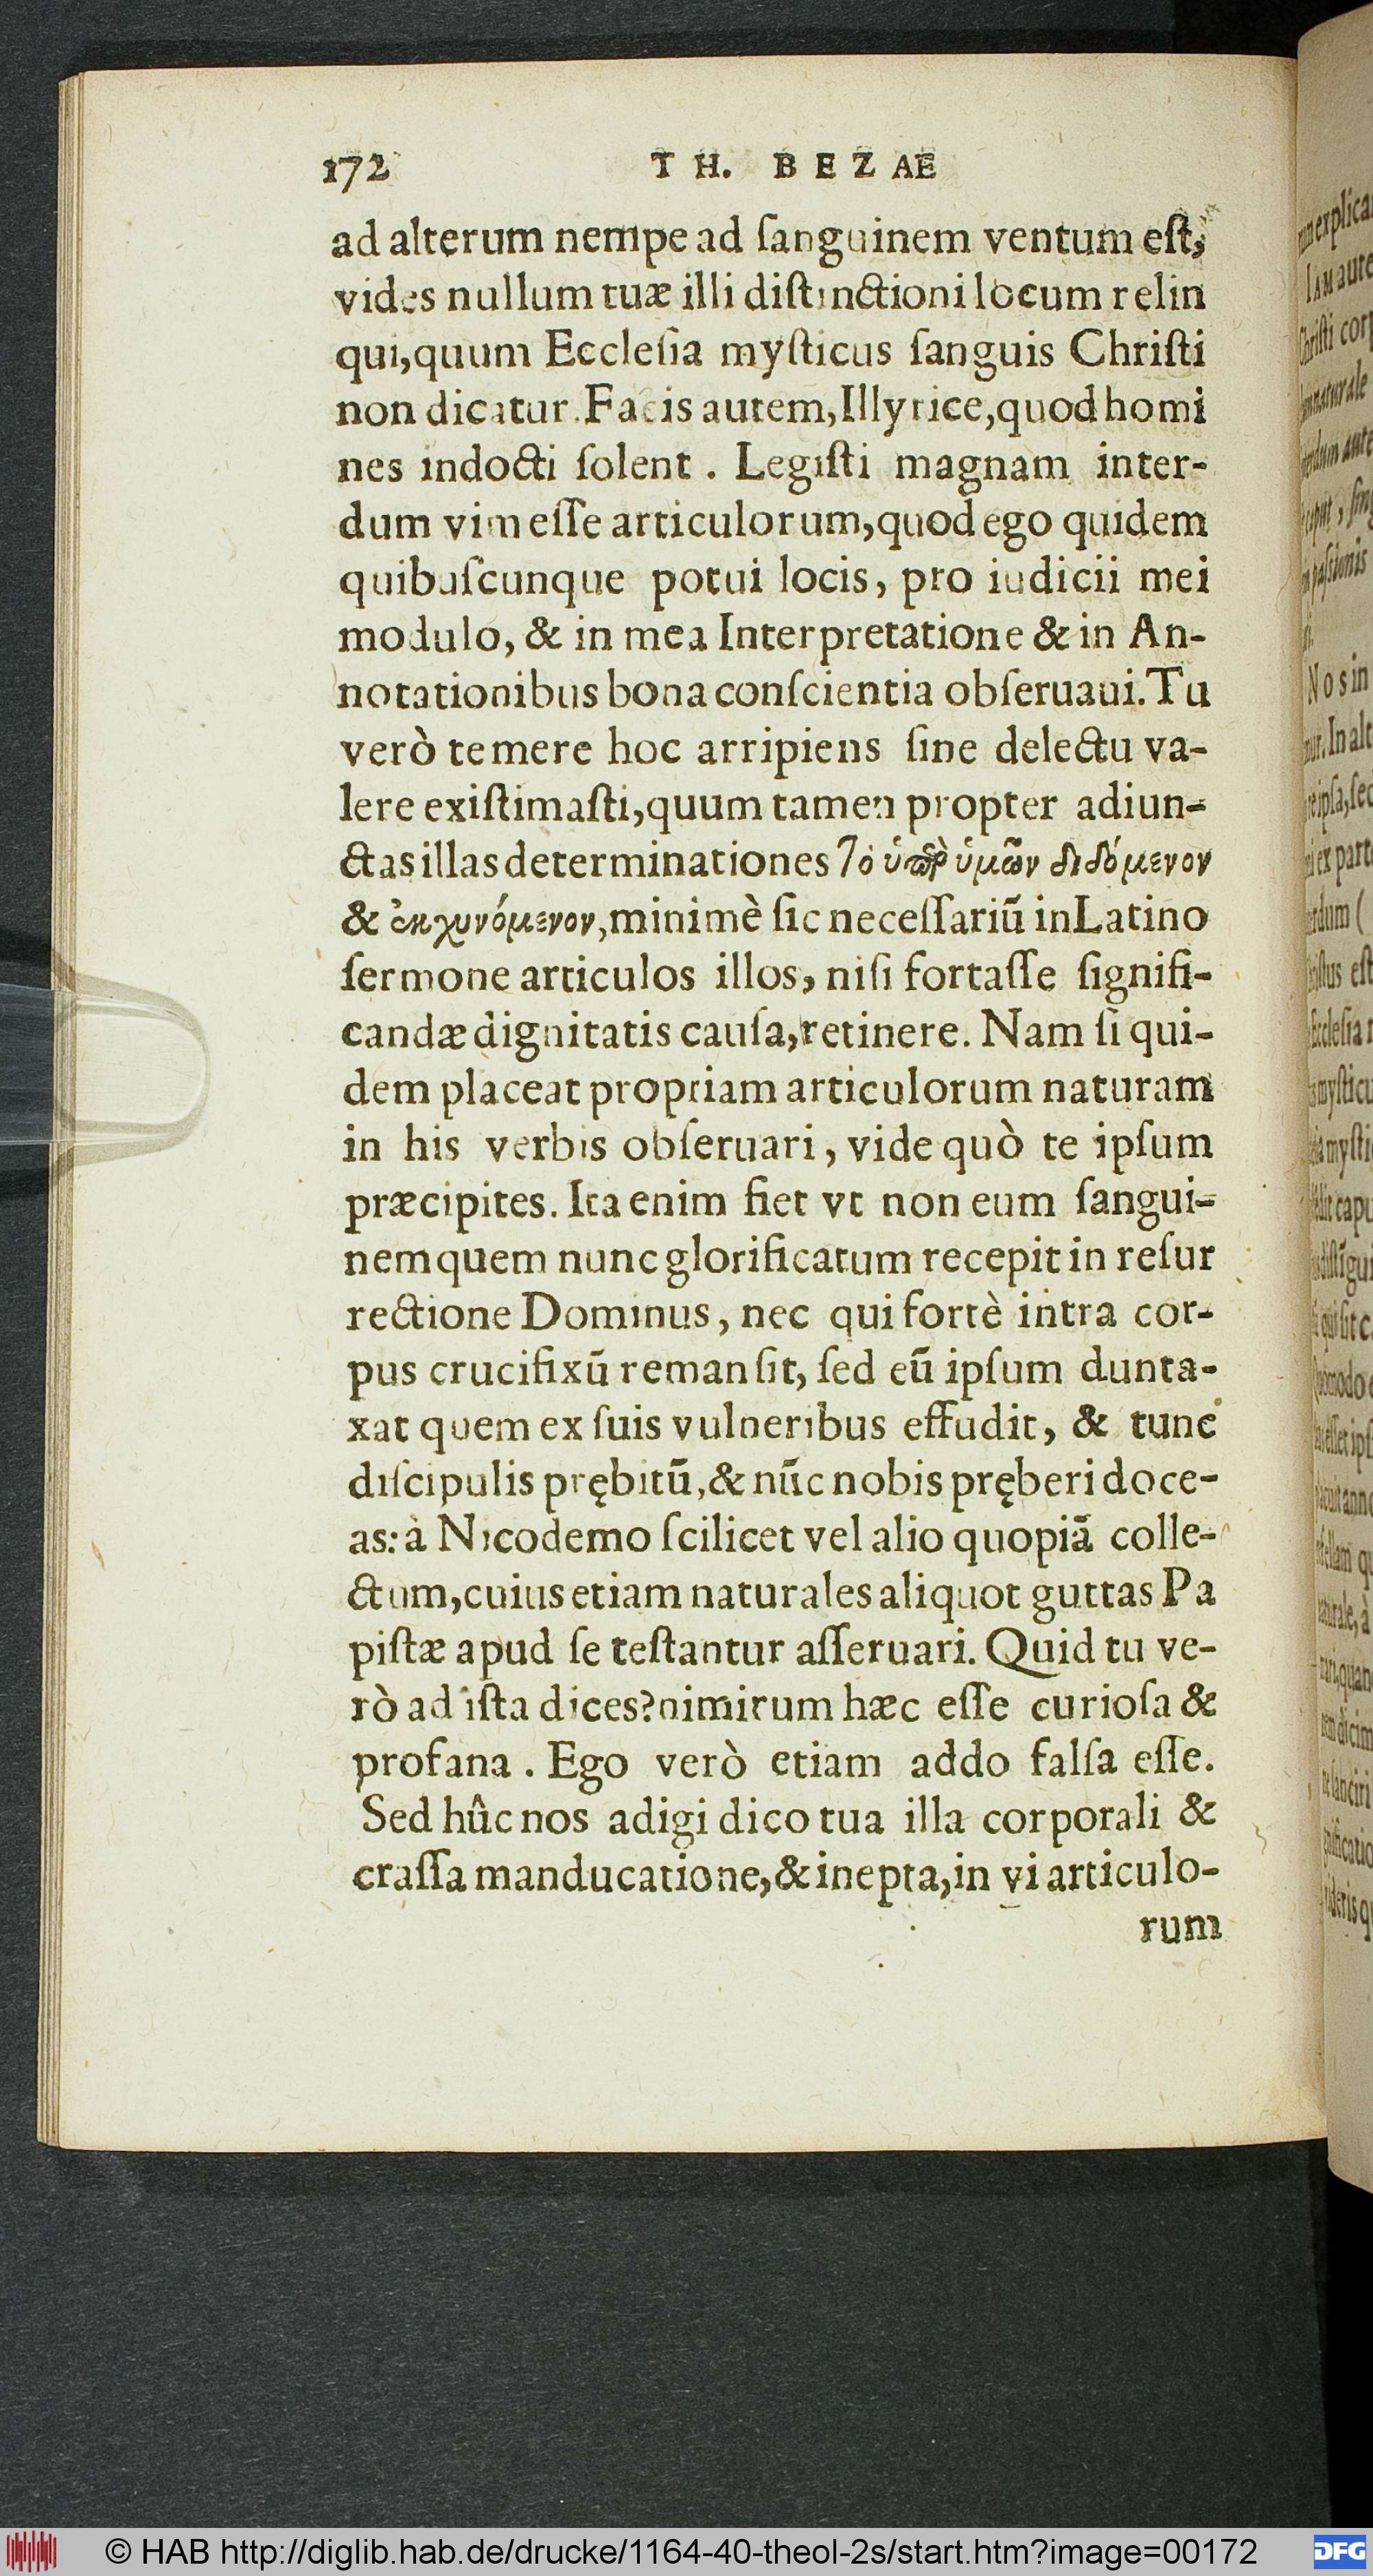 172 TH. BEZAE
ad alterum nempe ad ſanguinem ventum eſt,
vides nullum tuæ illi diſtinctioni locum relin
qui, quum Eccleſia myſticus ſanguis Chriſti
non dicatur. Facis autem, Illyrice, quod homi
nes indocti ſolent. Legiſti magnam inter-
dum vim eſſe articulorum, quod ego quidem
quibuſcunque potui locis, pro iudicii mei
modulo, & in mea Interpretatione & in An-
notationibus bona conſcientia obſeruaui. Tu
verò temere hoc arripiens ſine delectu va-
lere exiſtimaſti, quum tamen propter adiun-
ctas illas determinationes τὸ ὑπὲρ ὑμῶν διδόμενον
& ἐκχυνόμενον, minimè ſic neceſſariũ in Latino
ſermone articulos illos, niſi fortaſſe ſignifi-
candæ dignitatis cauſa, retinere. Nam ſi qui-
dem placeat propriam articulorum naturam
in his verbis obſeruari, vide quò te ipſum
præcipites. Ita enim fiet vt non eum ſangui-
nem quem nunc glorificatum recepit in reſur
rectione Dominus, nec qui fortè intra cor-
pus crucifixũ remanſit, ſed eũ ipſum dunta-
xat quem ex ſuis vulneribus effudit, & tunc
diſcipulis prębitũ, & nũc nobis pręberi doce-
as: à Nicodemo ſcilicet vel alio quopiã colle-
ctum, cuius etiam naturales aliquot guttas Pa
piſtæ apud ſe teſtantur aſſeruari. Quid tu ve-
rò ad iſta dices? nimirum hæc eſſe curioſa &
profana. Ego verò etiam addo falſa eſſe.
Sed hûc nos adigi dico tua illa corporali &
craſſa manducatione, & inepta, in vi articulo-
rum
© HAB http://diglib.hab.de/drucke/1164-40-theol-2s/start.htm?image=00172
DFG